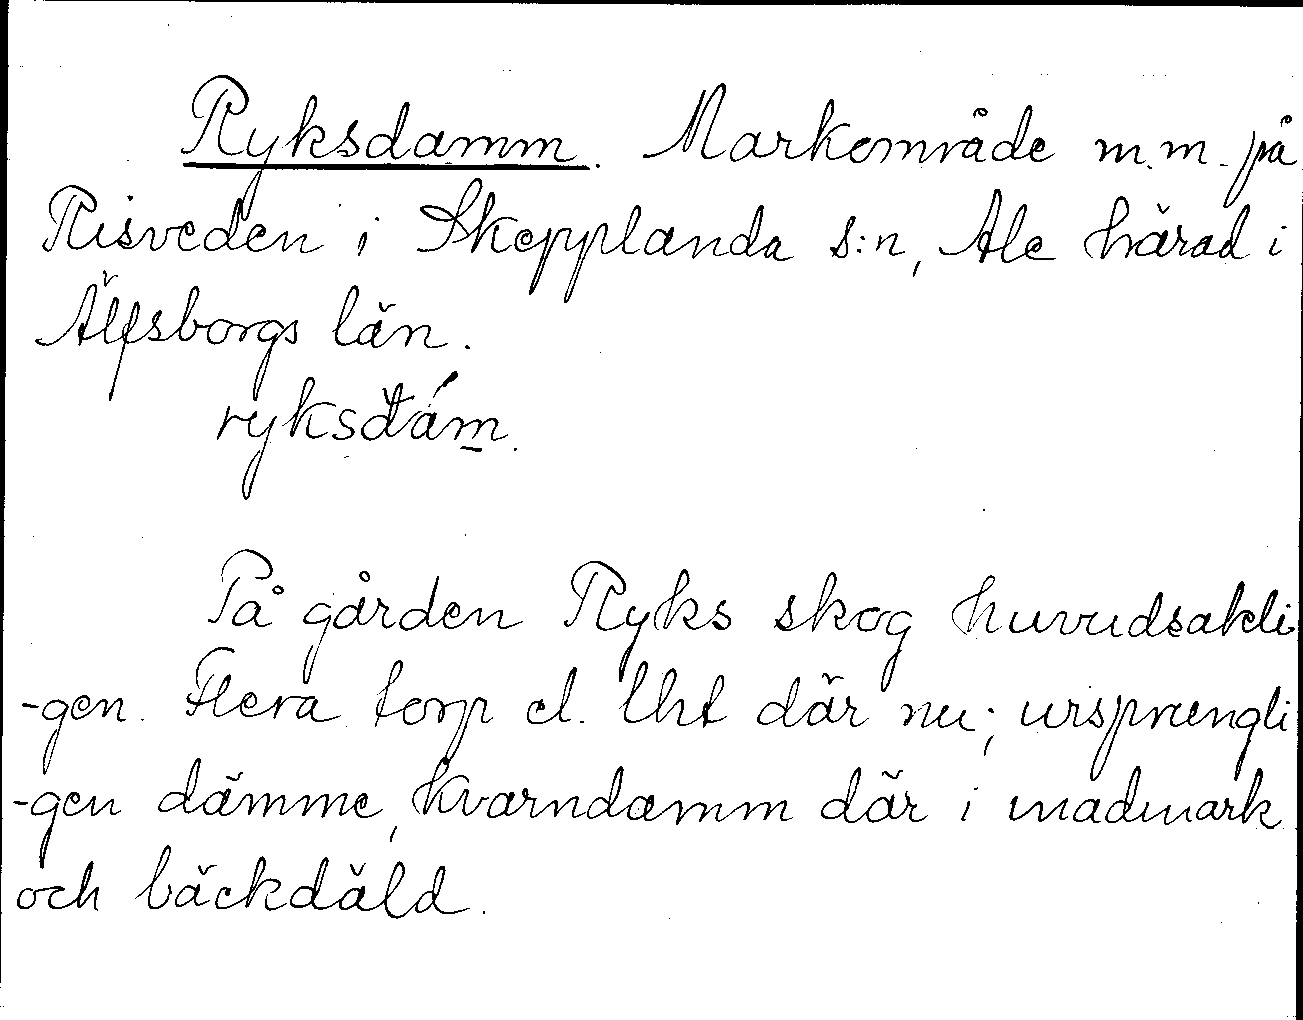 Ryksdamm. Markområde m.m. på
Risveden i Skepplanda s:n, Ale härad i
Älfsborgs län.
ryksdám.
På gården Ryks skog huvudsakli
-gen. Flera torp el. lht där nu; ursprungli
-gen dämme, kvarndamm där i madmark
och bäckdäld.